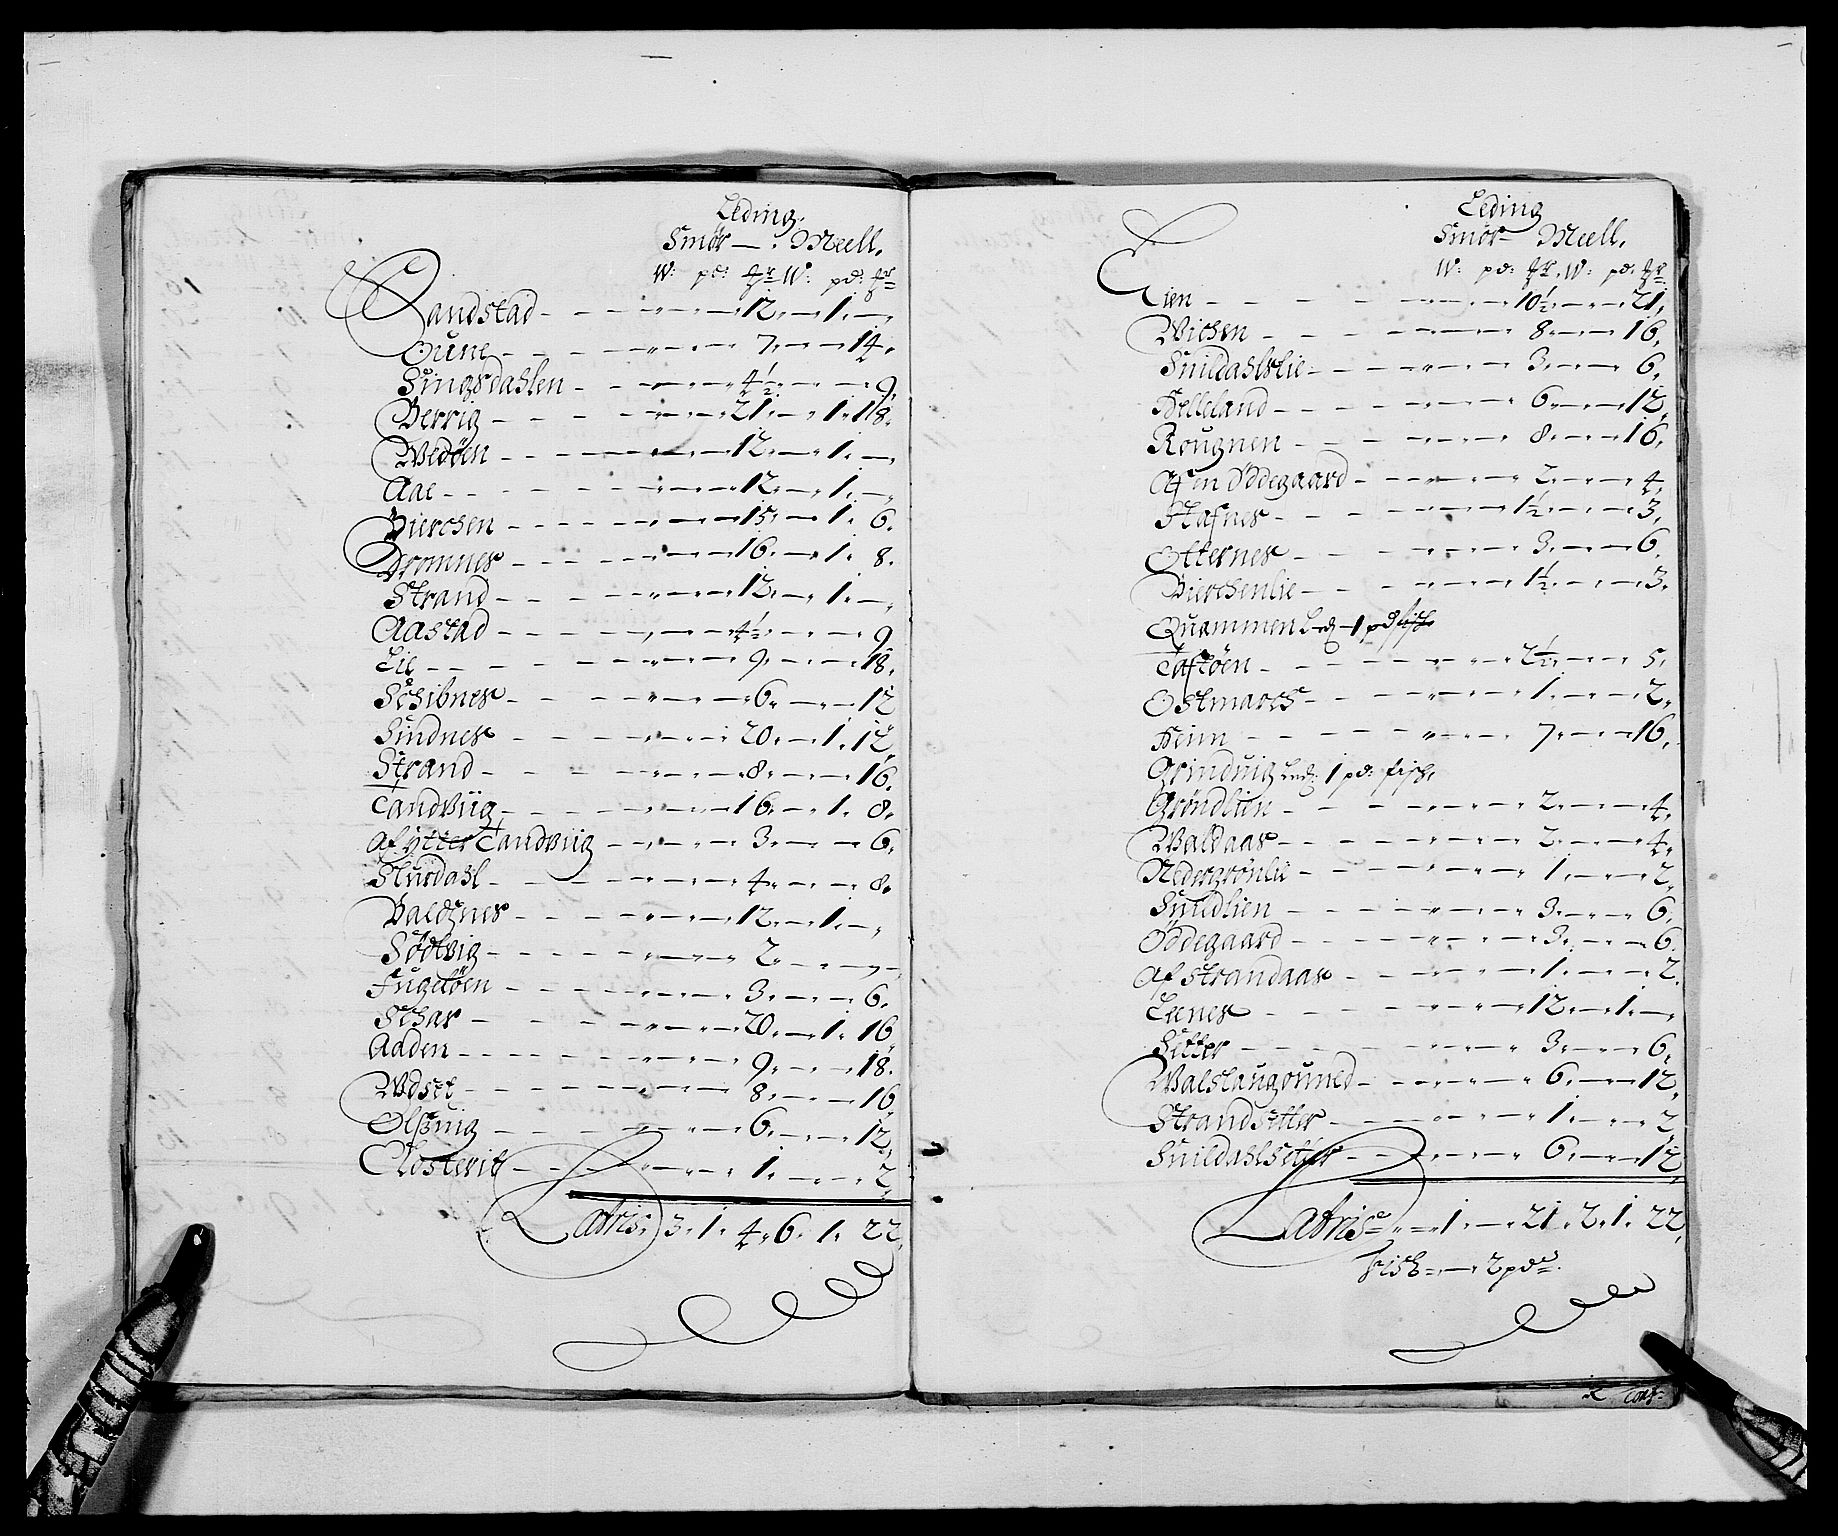 Leding.
Smør — . Meell.
W: pd: W: pd:
Sandstad — 12. — 1. —
Oune — 7. — 14.
Singsdahlen — 4½. — 9.
Berrig — 21. — 1. 18.
Wedøen — 12. — 1. —
Aae — 12. — 1. —
Bierchen — 15. — 1. 6.
Dromnes — 16. — 1. 8.
Strand — 12. — 1. —
Aastad — 4½. — 9.
Lie — 9. — 18.
Schibnes — 6. — 12
Sindnes — 20. — 1. 12.
Strand — 8. — 16.
Tandviig — 16. — 1. 8.
Af ytter Tandviig — 3. — 6.
Slurdahl — 4. — 8.
Baldsnes — 12. — 1. —
Sødvig — 2. —
Fugeløen — 3. — 6.
Schar — 20. — 1. 16
Aaden — 9. — 18.
Wdset — 8. — 16
Olsuig — 6. — 12.
Closterit — 1. — 2.
Latris. 3. 1. 4. 6. 1. 22.
Leding
Smør — Meell.
W: pd: W: pd:
Eien — 10½. — 21.
Wichen — 8. — 16.
Snildahlslie — 3. — 6.
Helleland — 6. — 12.
Rougnen — 8. — 16.
Af en Ødegaard — 2. — 4.
Stafnes — 1½. — 3.
Otternes — 3. — 6.
Bierchenlie — 1½. — 3.
Quammen Led — 1 pd fisch
Taftøen — 2½. — 5.
Ostmarch — 1. — 2.
Heim — 7. — 16.
Grinduig Led: 1 pd: fisch.
Grøndlien — 2. — 4.
Waldaas — 2. — 4.
Nedergrønlie — 1. — 2.
Sundlien — 3. — 6.
Ødegaard — 3. — 6.
Af Strandaas — 1. — 2.
Leenes — 12. — 1. —
Setter — 3. — 6.
Walslaugouned — 6. — 12.
Strandsetter — 1. — 2.
Snildahlsetter — 6. — 12
Latris — 1. — 21. 2. 1. 22.
Fisch — 2 pd.